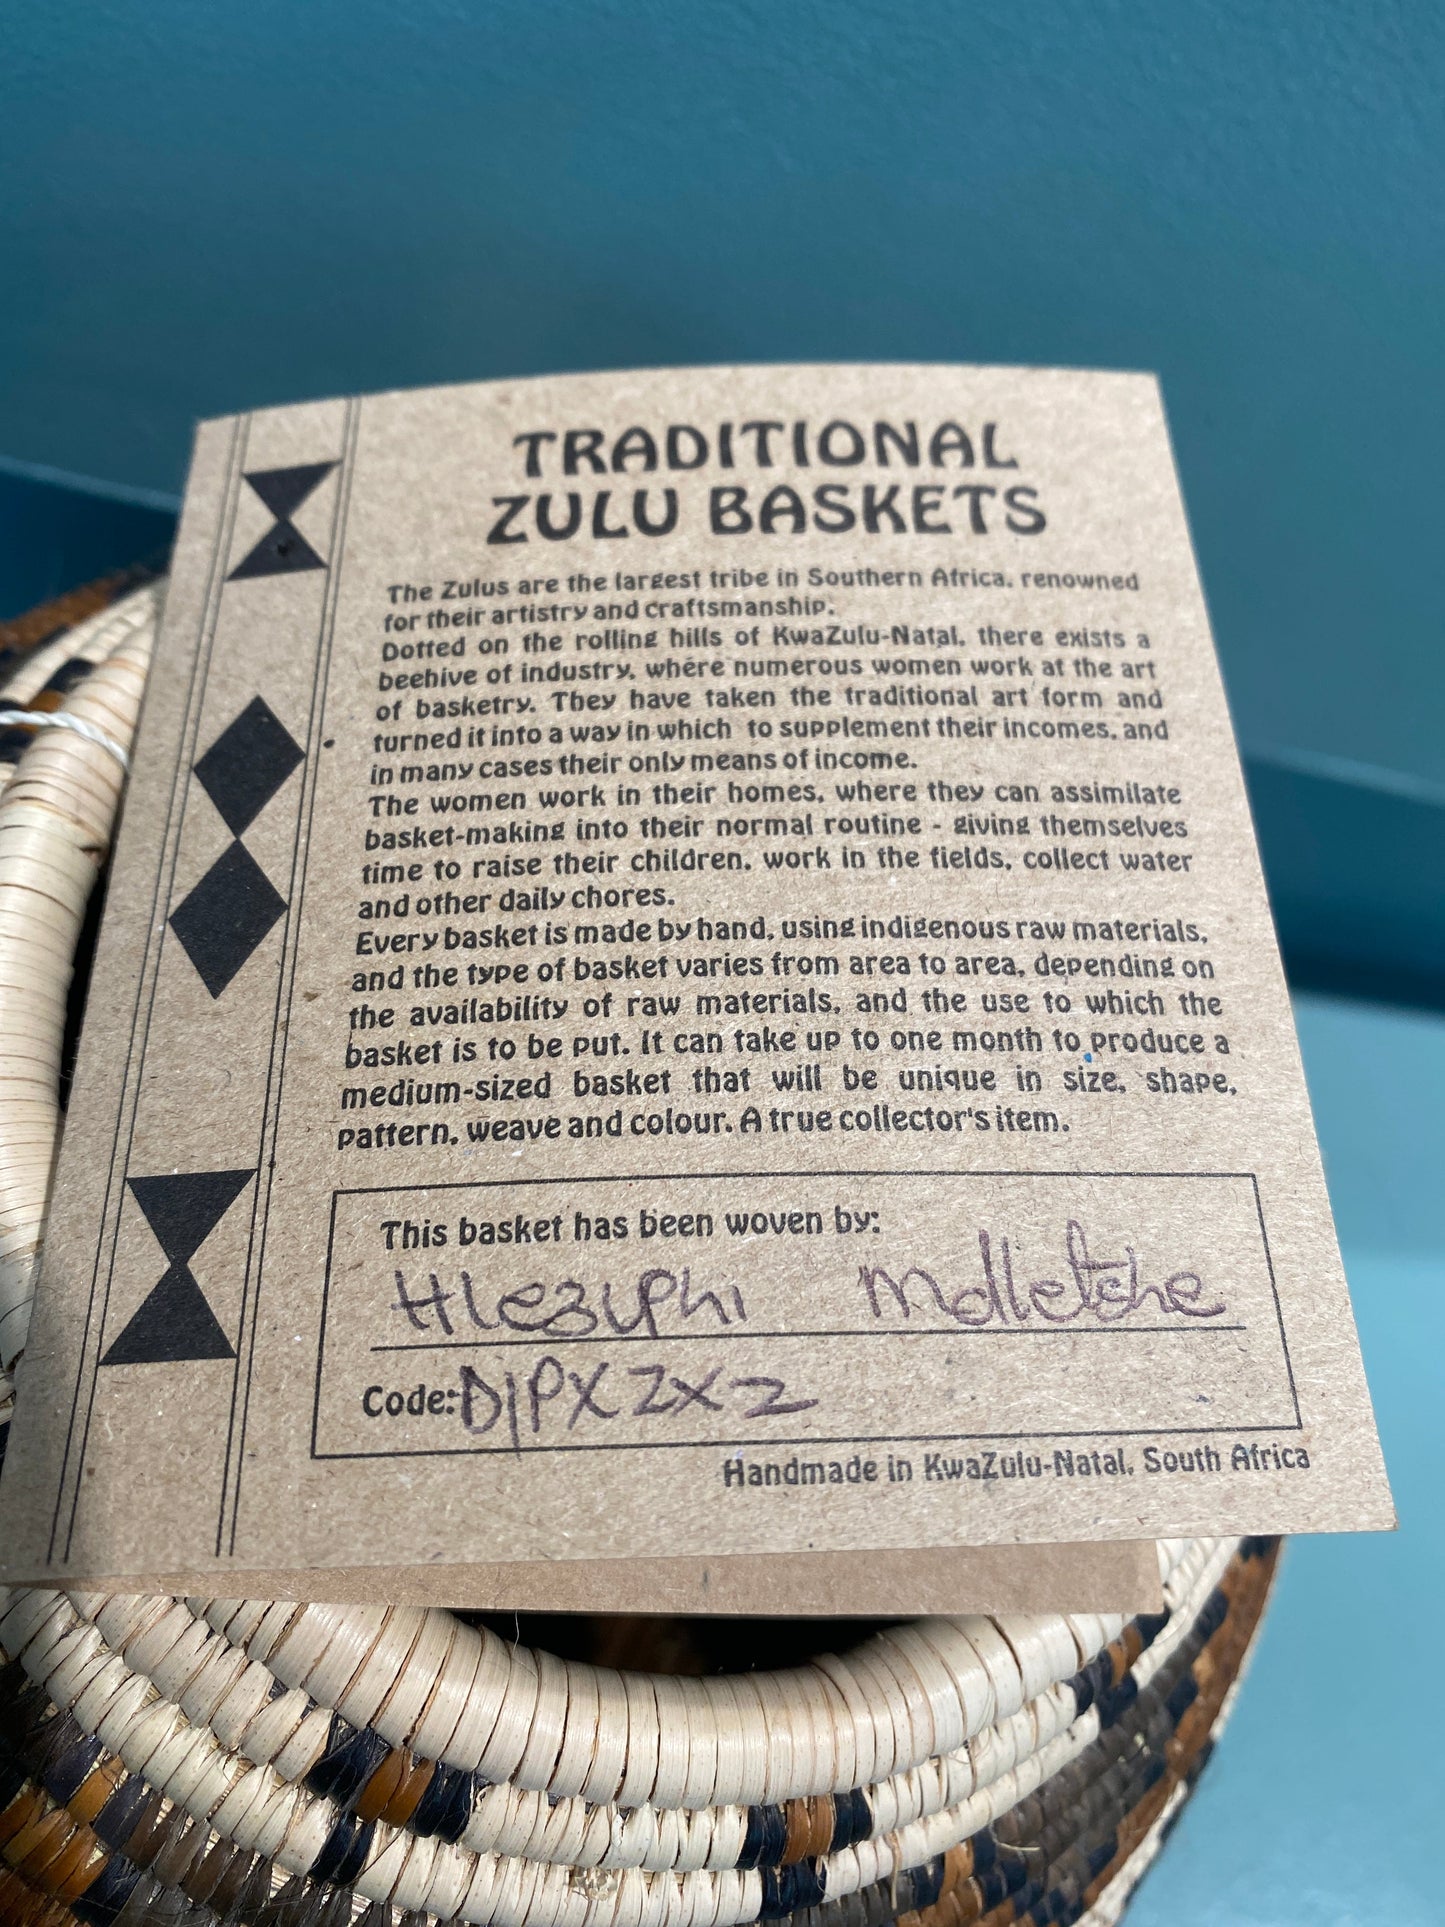 TRADITIONAL
ZULU BASKETS
The Zulus are the largest tribe in Southern Africa, renowned
for their artistry and craftsmanship.
Dotted on the rolling hills of KwaZulu-Natal, there exists a
beehive of industry, where numerous women work at the art
of basketry. They have taken the traditional art form and
turned it into a way in which to supplement their incomes, and
in many cases their only means of income.
The women work in their homes, where they can assimilate
basket-making into their normal routine - giving themselves
time to raise their children, work in the fields, collect water
and other daily chores.
Every basket is made by hand, using indigenous raw materials,
and the type of basket varies from area to area, depending on
the availability of raw materials, and the use to which the
basket is to be put. It can take up to one month to produce a
medium-sized basket that will be unique in size, shape,
pattern, weave and colour. A true collector's item.
This basket has been woven by:
Hlezuphi
Code: D/PX2X2
Handmade in KwaZulu-Natal, South Africa